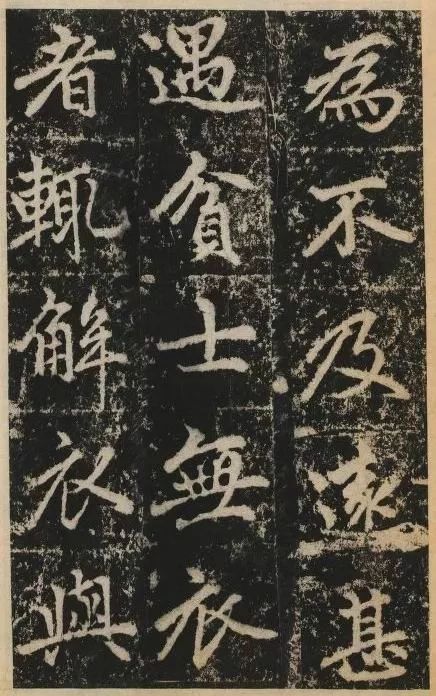 為不及遠甚
遇貧士無衣
者輒解衣與